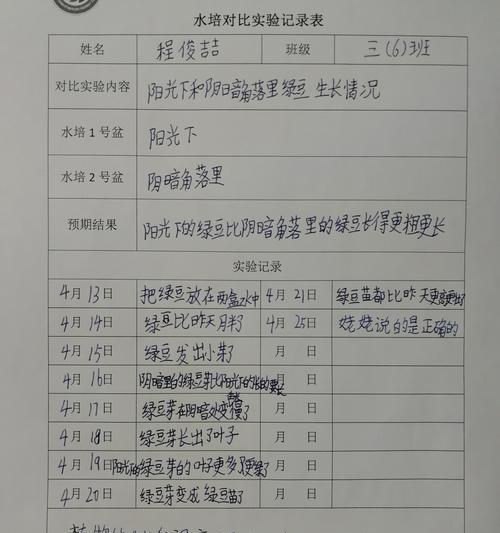 水培对比实验记录表
姓名 程俊喆 班级 三(6)班
对比实验内容 阳光下和阴暗角落里绿豆生长情况
水培1号盆 阳光下
水培2号盆 阴暗角落里
预期结果 阳光下的绿豆比阴暗角落里的绿豆长得更粗更长
实验记录
4月13日 把绿豆放在两盒水中 4月21日 绿豆苗都比昨天更
4月14日 绿豆比昨天胖了 4月25日 姥姥说的是正确的
4月15日 绿豆发出小芽了 月 日
4月16日 阴暗里的绿豆芽比阳光下的长的更长 月 日
4月17日 绿豆芽在阴暗处变慢了 月 日
4月18日 绿豆芽长出了叶子 月 日
4月19日 阳光的绿豆芽的叶子更多 月 日
4月20日 绿豆芽变成绿豆苗了 月 日